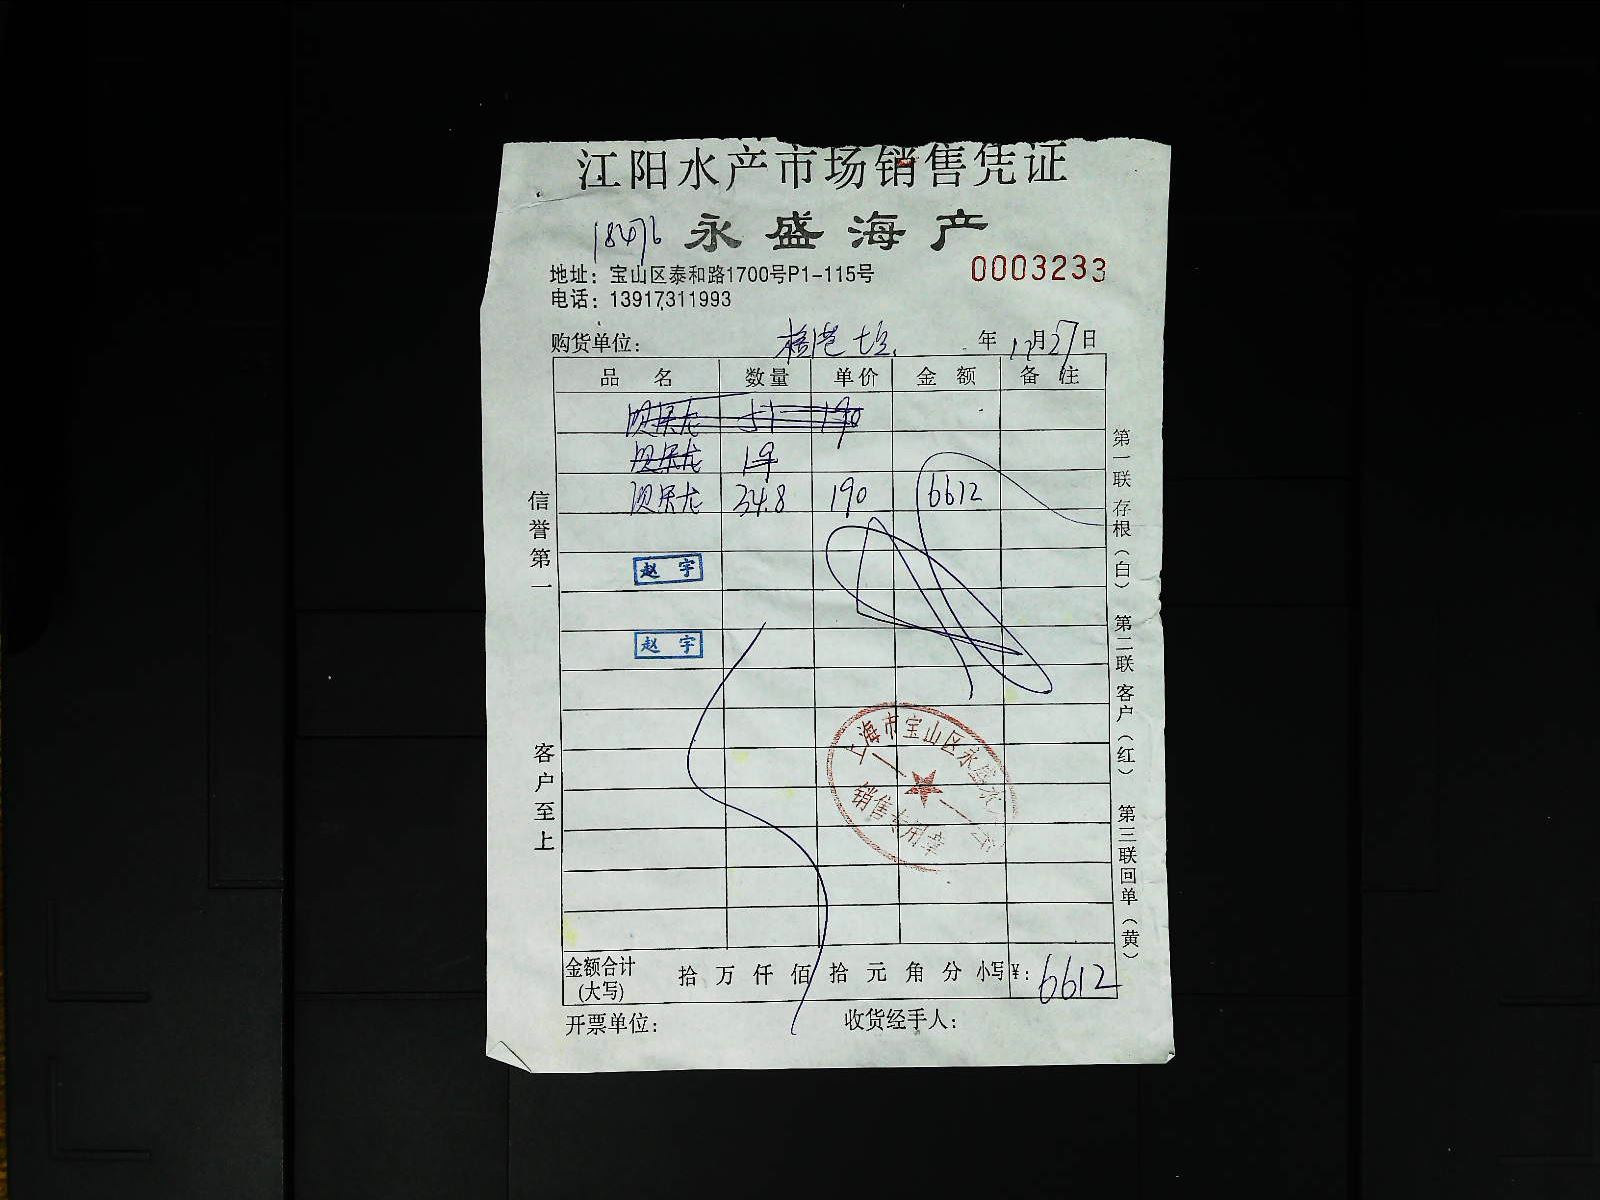 江阳水产市场销售凭证
18476 永盛海产
地址：宝山区泰和路1700号P1-115号
0003233
电话：13917311993
购货单位： 年 12月27日
品名 数量 单价 金额 备注
贝朱龙 51 190
贝朱龙 19
贝朱龙 34.8 190 6612
赵宇
赵宇
上海市宝山区永盛水
销售专用章
金额合计(大写) 拾 万 仟 佰 拾 元 角 分 小写¥：6612
开票单位： 收货经手人：
信誉第一
客户至上
第一联存根（白） 第二联客户（红） 第三联回单（黄）